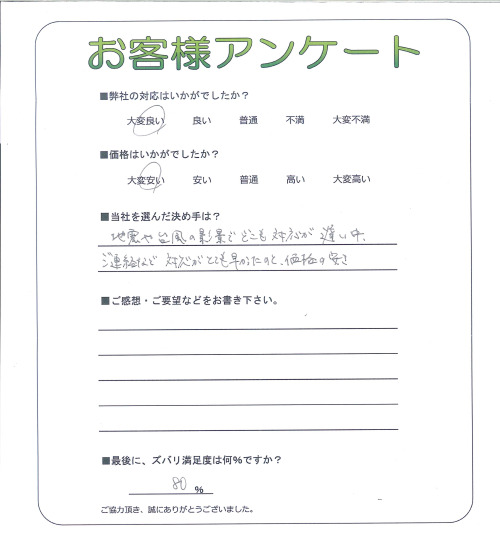 お客様アンケート
■弊社の対応はいかがでしたか？
大変良い 良い 普通 不満 大変不満
■価格はいかがでしたか？
大変安い 安い 普通 高い 大変高い
■当社を選んだ決め手は？
地震や台風の影響でどこも対応が遅い中、
ご連絡など対応がとても早かったのと、価格の安さ
■ご感想・ご要望などをお書き下さい。
■最後に、ズバリ満足度は何%ですか？
80 %
ご協力頂き、誠にありがとうございました。